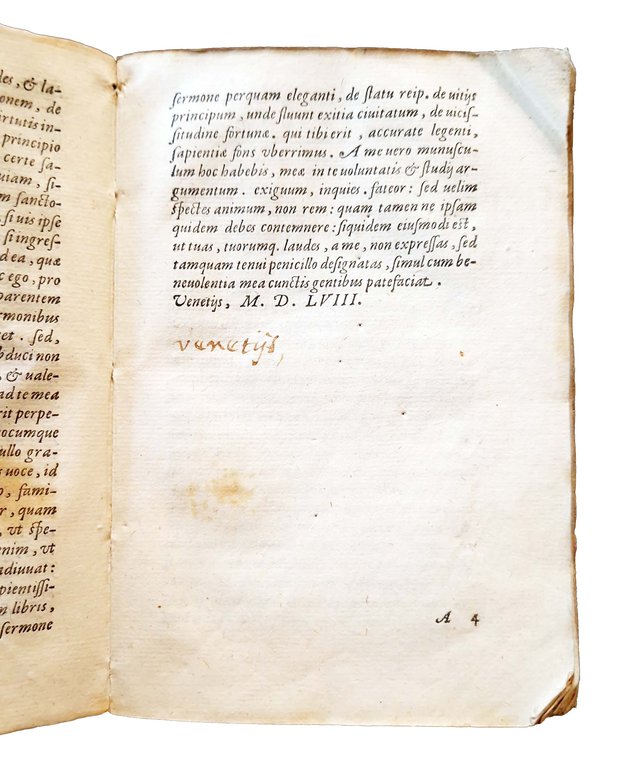 des, & la-
onem, de
irtutis in-
principio
certe sa-
uiam, si-
m sancto-
si uis ipse
si ingres-
dea, quæ
c ego, pro
parentem
rmonibus
et. sed,
bduci non
, & uale-
ad te mea
rit perpe-
ocumque
ullo gra-
s uoce, id
o, fami-
r, quam
, vt spe-
enim, vt
adiuuat:
pientissi-
n libris,
sermone
sermone perquam eleganti, de statu reip. de uitijs
principum, unde fluunt exitia ciuitatum, de uicis-
situdine fortunæ. qui tibi erit, accurate legenti,
sapientiæ fons vberrimus. A me uero munuscu-
lum hoc habebis, meæ in te voluntatis & studij ar-
gumentum. exiguum, inquies. fateor: sed uelim
spectes animum, non rem: quam tamen ne ipsam
quidem debes contemnere: siquidem eiusmodi est,
ut tuas, tuorumq. laudes, a me, non expressas, sed
tamquam tenui penicillo designatas, simul cum be-
neuolentia mea cunctis gentibus patefaciat.
Venetijs, M. D. LVIII.
venetijs,
A 4